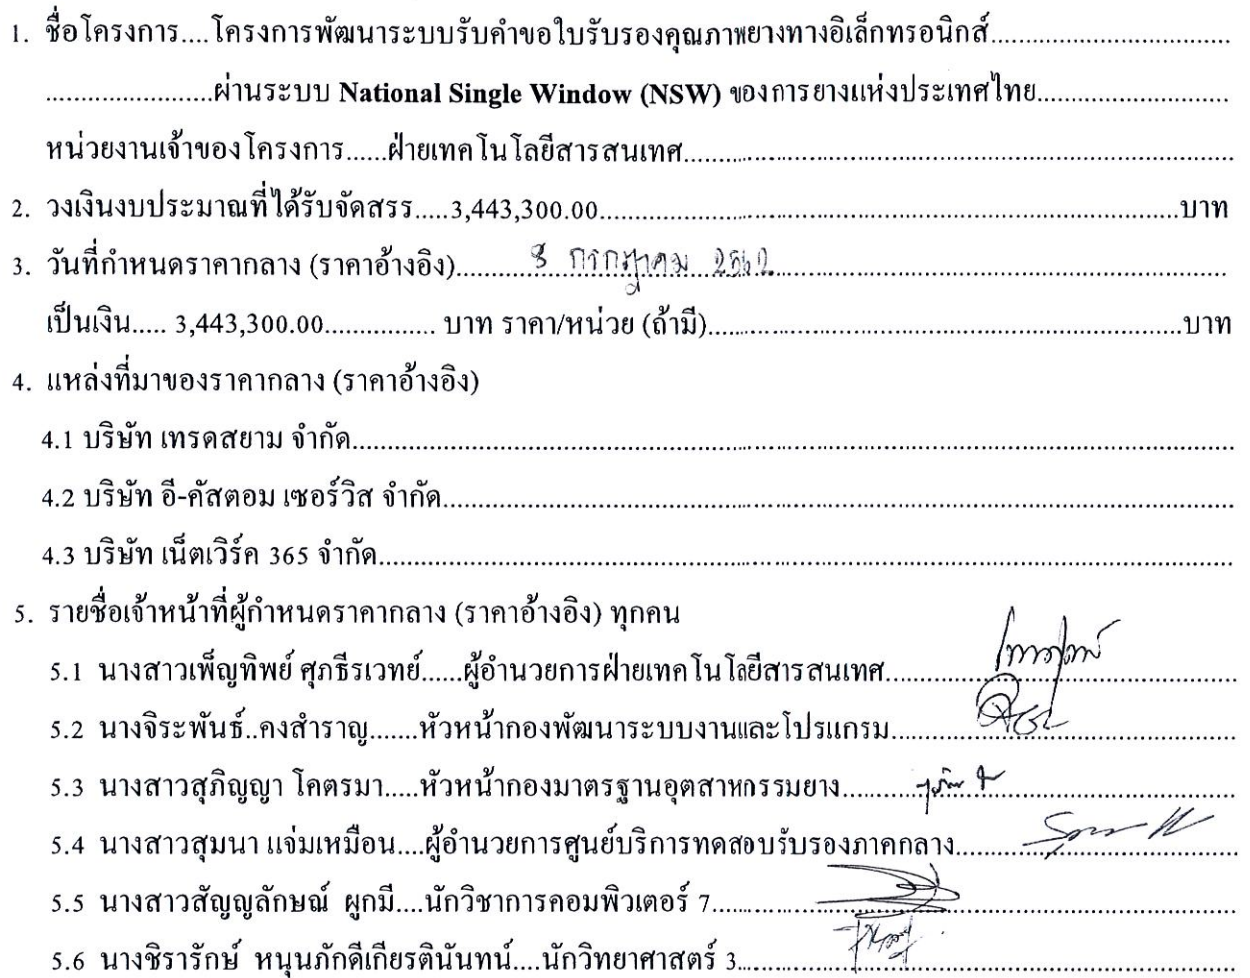 1. ชื่อโครงการ....โครงการพัฒนาระบบรับคำขอใบรับรองคุณภาพยางทางอิเล็กทรอนิกส์
ผ่านระบบ National Single Window (NSW) ของการยางแห่งประเทศไทย
หน่วยงานเจ้าของโครงการ......ฝ่ายเทคโนโลยีสารสนเทศ
2. วงเงินงบประมาณที่ได้รับจัดสรร.....3,443,300.00.....บาท
3. วันที่กำหนดราคากลาง (ราคาอ้างอิง)..... 8 กรกฎาคม 2562
เป็นเงิน..... 3,443,300.00............... บาท ราคา/หน่วย (ถ้ามี).....บาท
4. แหล่งที่มาของราคากลาง (ราคาอ้างอิง)
4.1 บริษัท เทรดสยาม จำกัด
4.2 บริษัท อี-คัสตอม เซอร์วิส จำกัด
4.3 บริษัท เน็ตเวิร์ค 365 จำกัด
5. รายชื่อเจ้าหน้าที่ผู้กำหนดราคากลาง (ราคาอ้างอิง) ทุกคน
5.1 นางสาวเพ็ญทิพย์ ศุภธีรเวทย์......ผู้อำนวยการฝ่ายเทคโนโลยีสารสนเทศ
5.2 นางจิระพันธ์..คงสำราญ.......หัวหน้ากองพัฒนาระบบงานและโปรแกรม
5.3 นางสาวสุภิญญา โคตรมา.....หัวหน้ากองมาตรฐานอุตสาหกรรมยาง
5.4 นางสาวสุมนา แจ่มเหมือน....ผู้อำนวยการศูนย์บริการทดสอบรับรองภาคกลาง
5.5 นางสาวสัญญลักษณ์ ผูกมี....นักวิชาการคอมพิวเตอร์ 7
5.6 นางชิรารักษ์ หนุนภักดีเกียรตินันทน์....นักวิทยาศาสตร์ 3